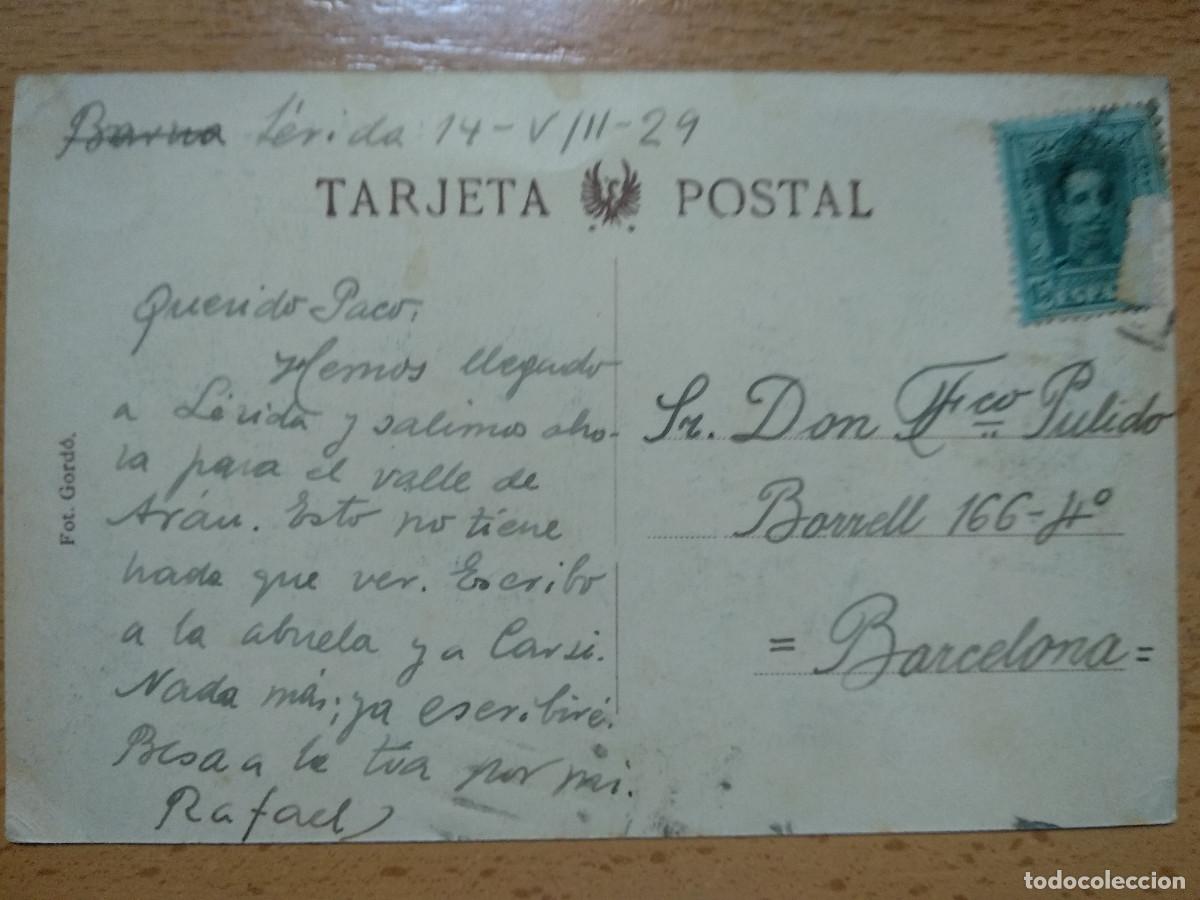 Barna Lérida 14-VIII-29
TARJETA POSTAL
Querido Paco:
Hemos llegado
a Lérida y salimos aho-
ra para el valle de
Arán. Esto no tiene
nada que ver. Escribo
a la abuela y a Carsi.
Nada más; ya escribiré.
Besa a la tía por mi.
Rafael
Fot. Gordó.
Sr. Don Fco Pulido
Borrell 166-4º
= Barcelona =
todocoleccion